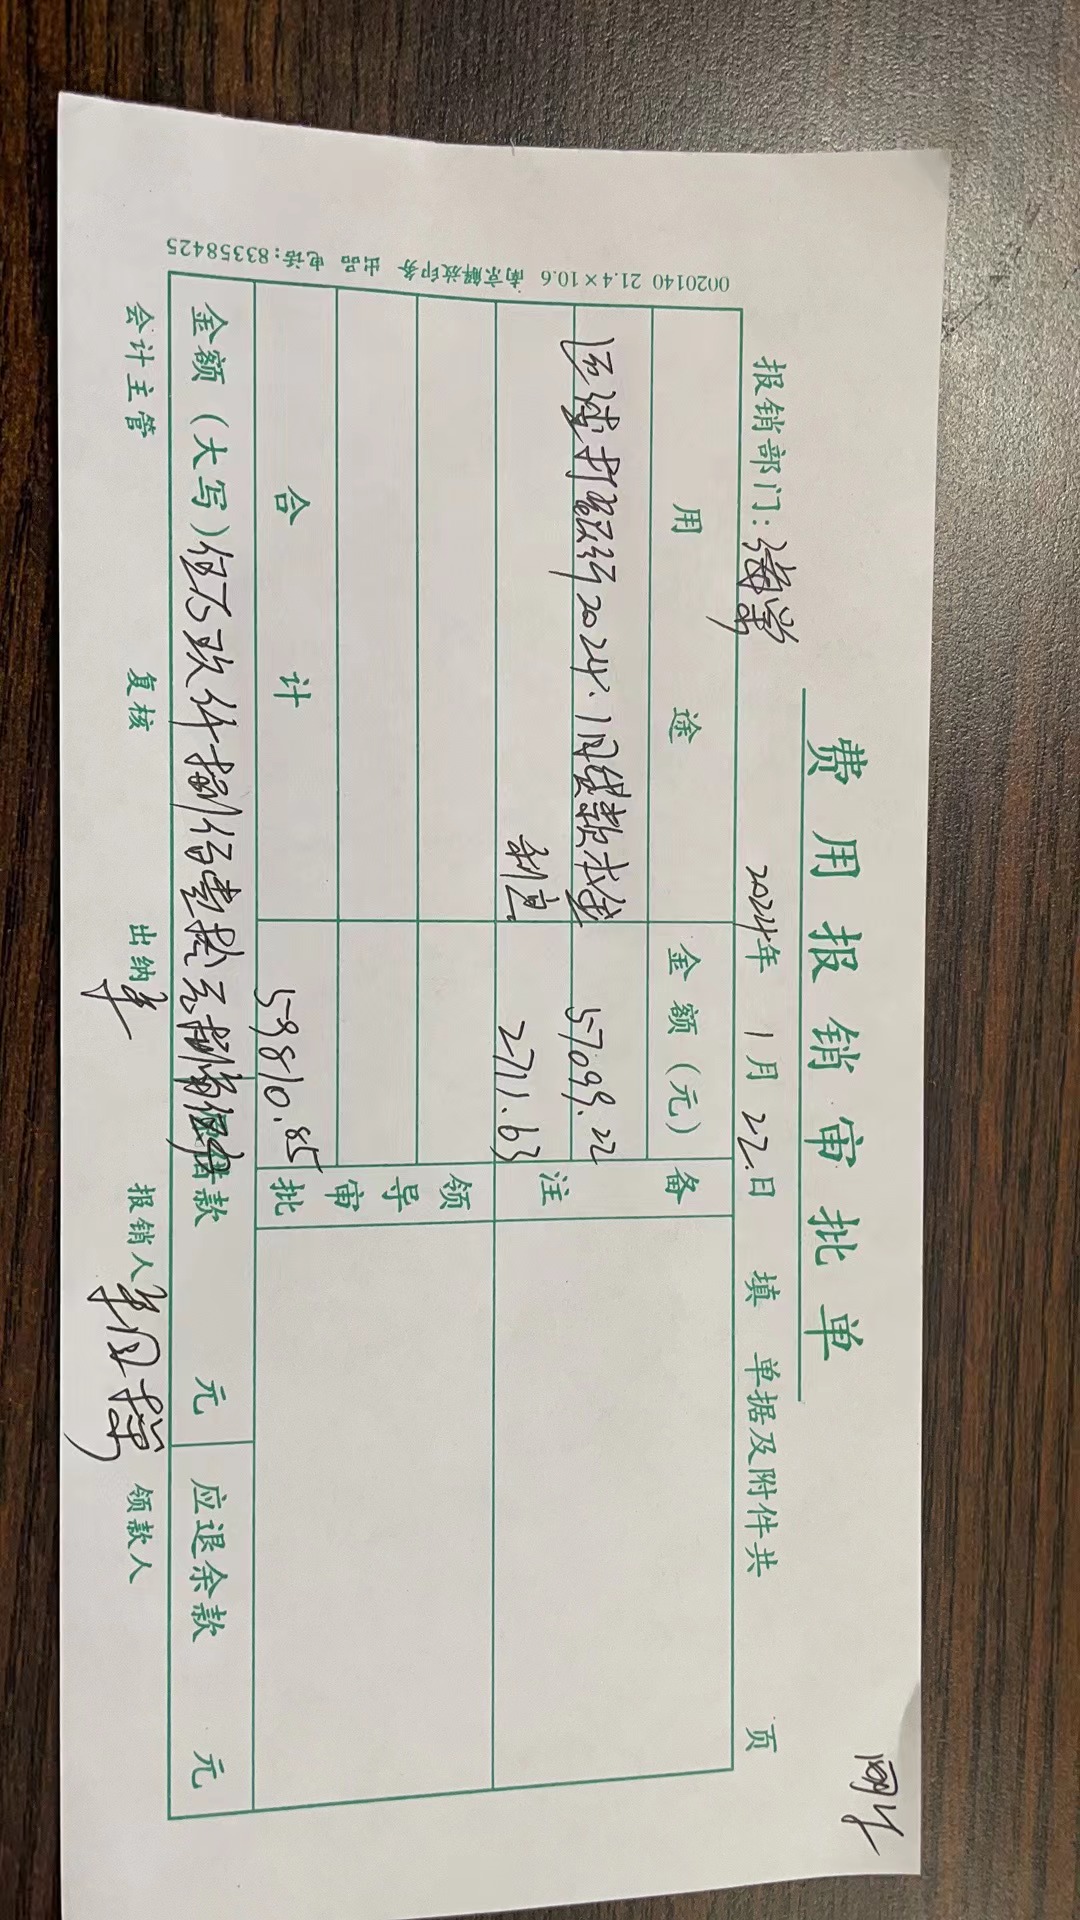 费用报销审批单
报销部门:
2024年 1月 22日 填 单据及附件共 页
用途 金额(元) 备注
2024.1月贷款本金 57099.22
利息 2711.63
合计 59810.85
领导审批
金额(大写)伍万玖仟捌佰壹拾元捌角伍分 借款 元 应退余款 元
会计主管 复核 出纳 报销人 领款人
0020140 21.4×10.6 南京解放印务 出品 电话:83358425